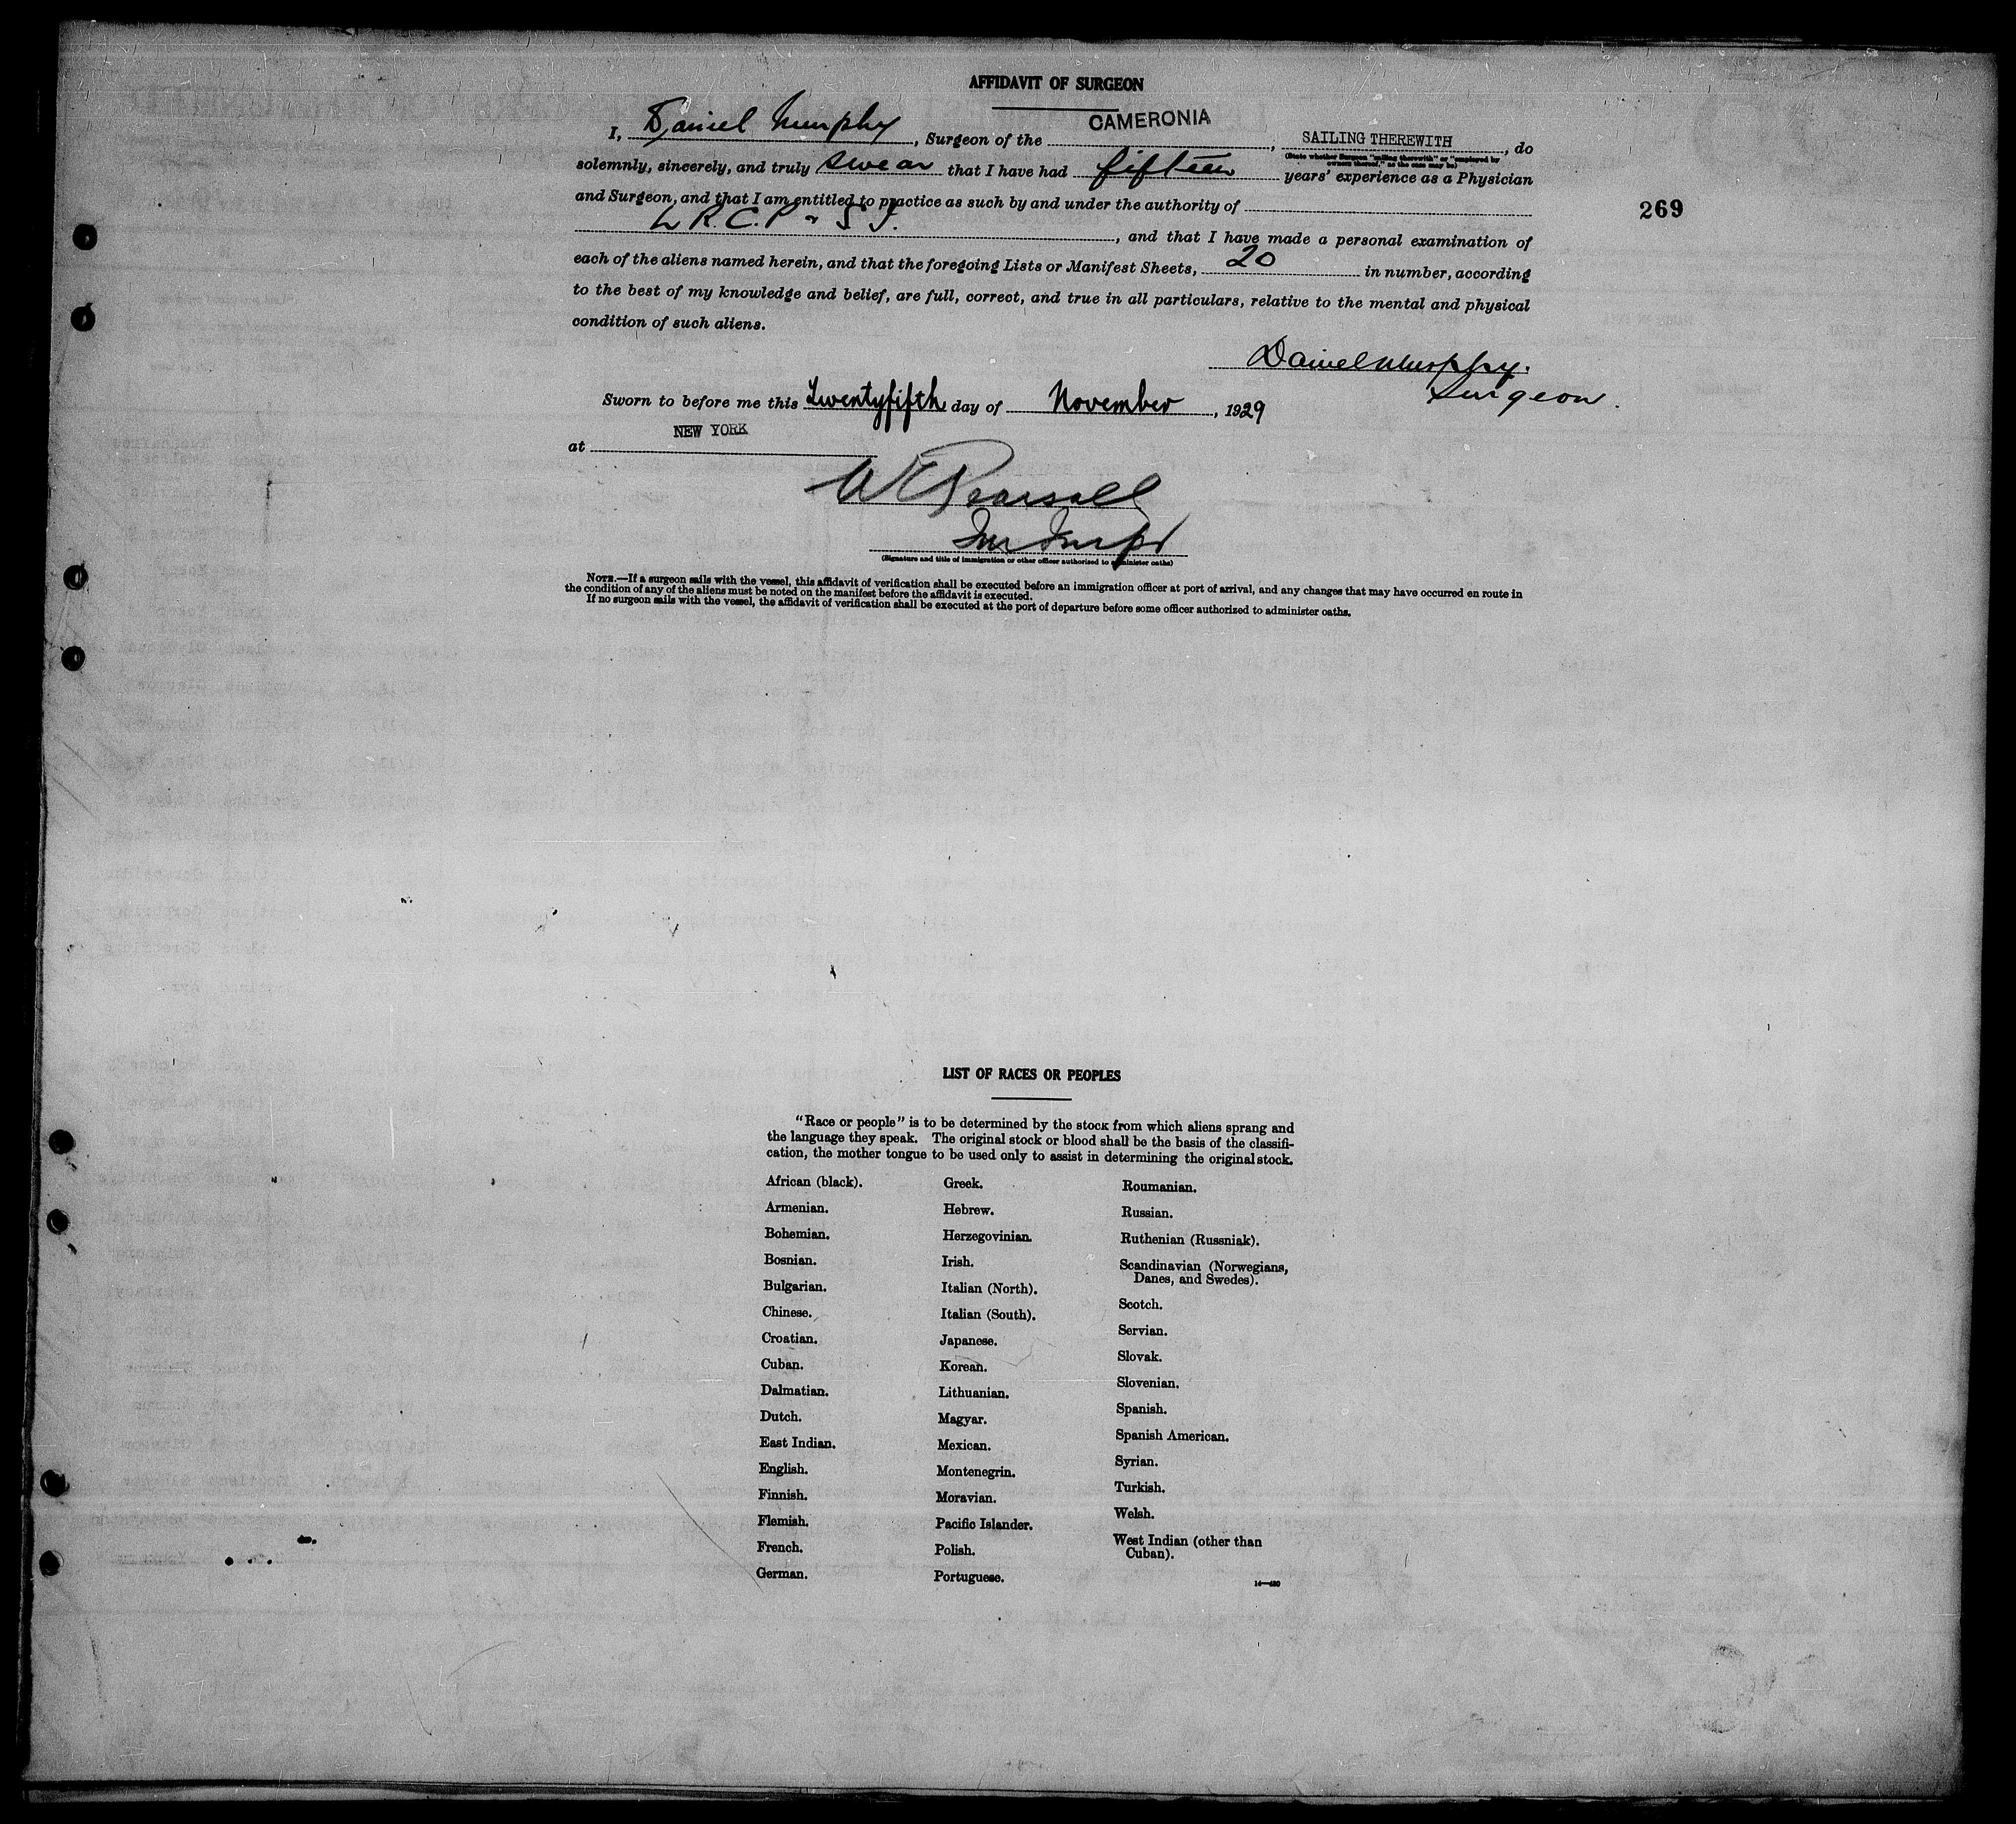 AFFIDAVIT OF SURGEON
I, Daniel Murphy, Surgeon of the CAMERONIA, SAILING THEREWITH, do
(State whether Surgeon "sailing therewith" or "employed by
owners thereof," as the case may be)
solemnly, sincerely, and truly swear that I have had fifteen years' experience as a Physician
and Surgeon, and that I am entitled to practice as such by and under the authority of
L R.C.P & S I., and that I have made a personal examination of
269
each of the aliens named herein, and that the foregoing Lists or Manifest Sheets, 20 in number, according
to the best of my knowledge and belief, are full, correct, and true in all particulars, relative to the mental and physical
condition of such aliens.
Daniel Murphy.
Surgeon.
Sworn to before me this Twentyfifth day of November, 1929
at NEW YORK
Pearsall
(Signature and title of immigration or other officer authorized to administer oaths)
NOTE.—If a surgeon sails with the vessel, this affidavit of verification shall be executed before an immigration officer at port of arrival, and any changes that may have occurred en route in
the condition of any of the aliens must be noted on the manifest before the affidavit is executed.
If no surgeon sails with the vessel, the affidavit of verification shall be executed at the port of departure before some officer authorized to administer oaths.
LIST OF RACES OR PEOPLES
"Race or people" is to be determined by the stock from which aliens sprang and
the language they speak. The original stock or blood shall be the basis of the classifi-
cation, the mother tongue to be used only to assist in determining the original stock.
African (black).
Armenian.
Bohemian.
Bosnian.
Bulgarian.
Chinese.
Croatian.
Cuban.
Dalmatian.
Dutch.
East Indian.
English.
Finnish.
Flemish.
French.
German.
Greek.
Hebrew.
Herzegovinian.
Irish.
Italian (North).
Italian (South).
Japanese.
Korean.
Lithuanian.
Magyar.
Mexican.
Montenegrin.
Moravian.
Pacific Islander.
Polish.
Portuguese.
Roumanian.
Russian.
Ruthenian (Russniak).
Scandinavian (Norwegians,
Danes, and Swedes).
Scotch.
Servian.
Slovak.
Slovenian.
Spanish.
Spanish American.
Syrian.
Turkish.
Welsh.
West Indian (other than
Cuban).
14—480